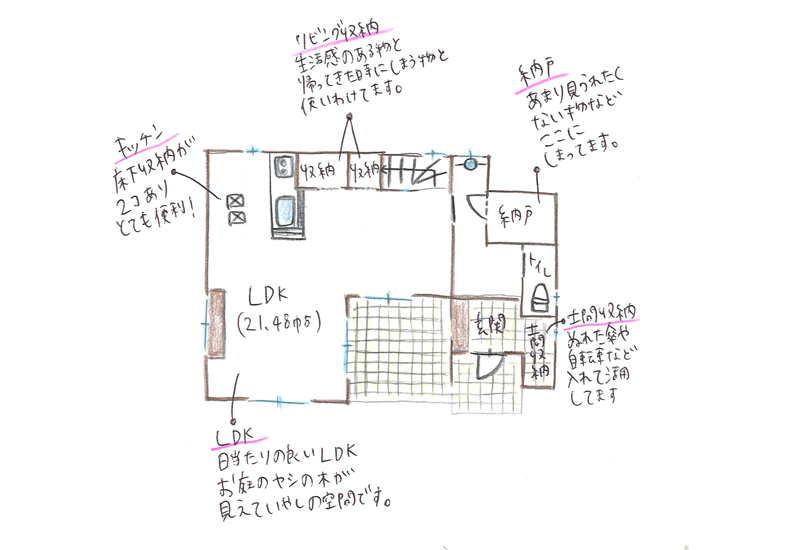 リビング収納
生活感のある物と
帰ってきた時にしまう物と
使いわけてます。
納戸
あまり見られたく
ない物など
ここに
しまってます。
キッチン
床下収納が
2コあり
とても便利!
収納
収納
納戸
トイレ
LDK
(21.48帖)
玄関
土間収納
土間収納
ぬれた傘や
自転車など
入れて活用
してます
LDK
日当たりの良いLDK
お庭のヤシの木が
見えていやしの空間です。